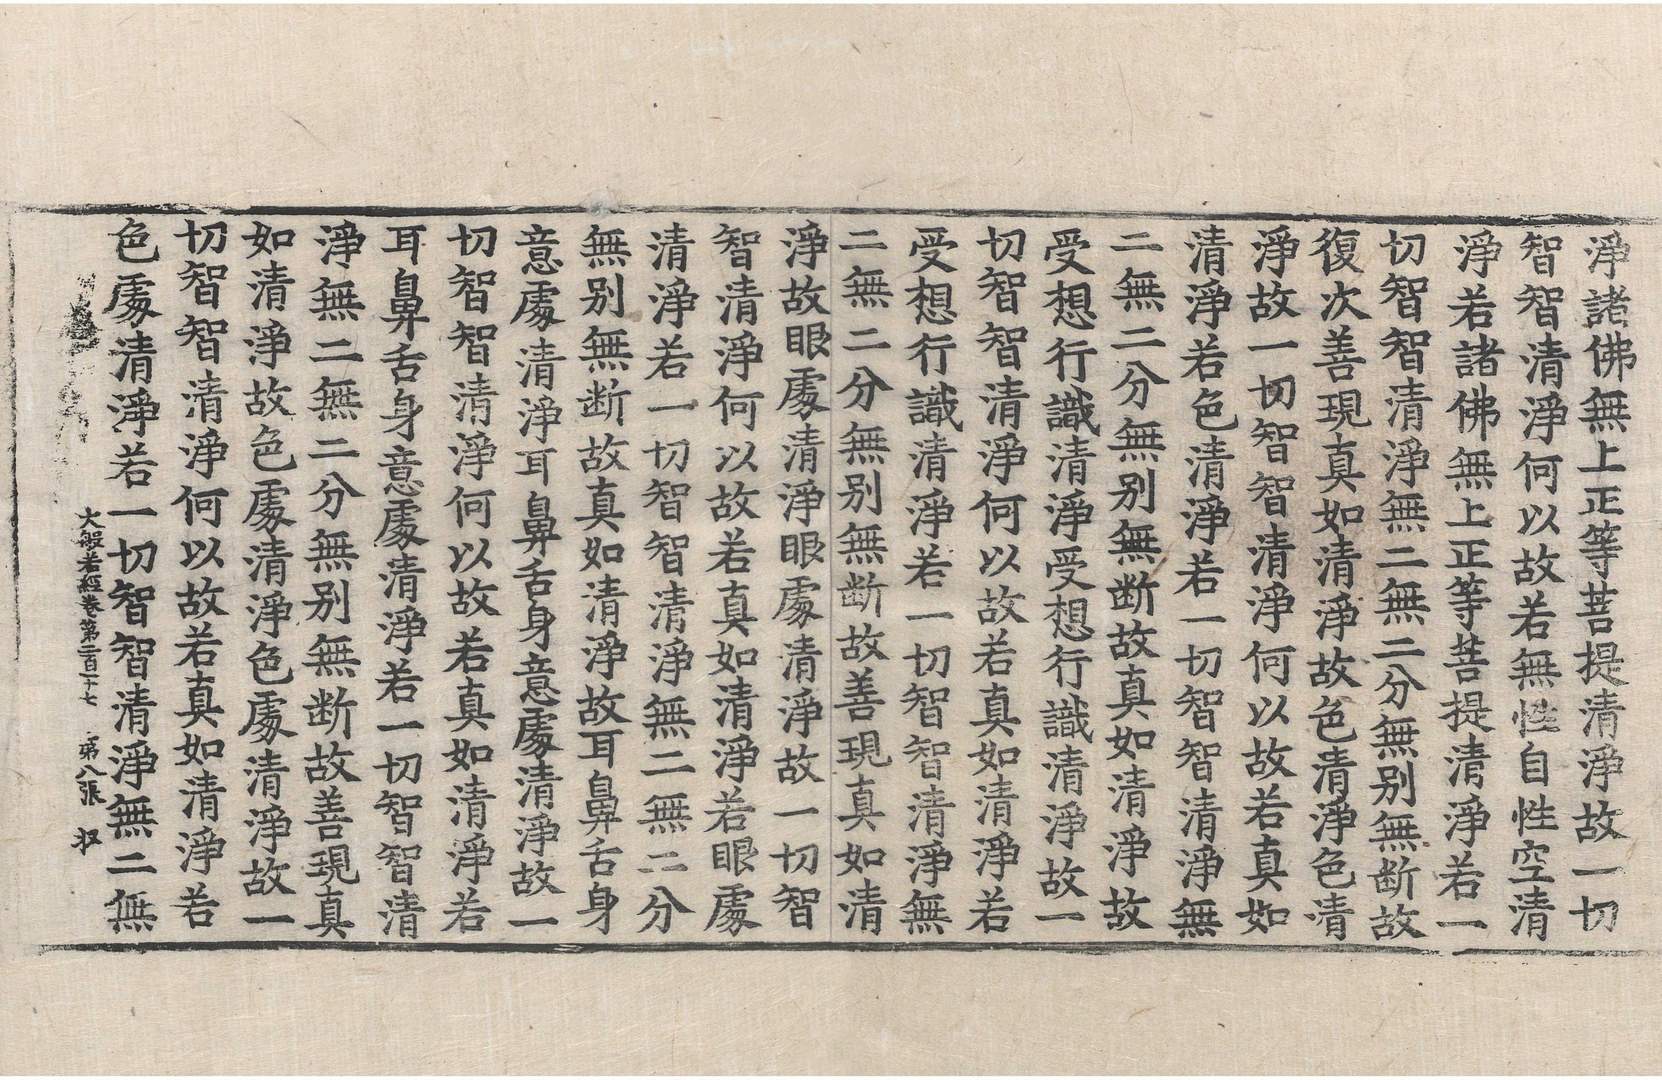 淨諸佛無上正等菩提清淨故一切
智智清淨何以故若無性自性空清
淨若諸佛無上正等菩提清淨若一
切智智清淨無二無二分無別無断故
復次善現真如清淨故色清淨色清
淨故一切智智清淨何以故若真如
清淨若色清淨若一切智智清淨無
二無二分無別無断故真如清淨故
受想行識清淨受想行識清淨故一
切智智清淨何以故若真如清淨若
受想行識清淨若一切智智清淨無
二無二分無別無断故善現真如清
淨故眼處清淨眼處清淨故一切智
智清淨何以故若真如清淨若眼處
清淨若一切智智清淨無二無二分
無別無断故真如清淨故耳鼻舌身
意處清淨耳鼻舌身意處清淨故一
切智智清淨何以故若真如清淨若
耳鼻舌身意處清淨若一切智智清
淨無二無二分無別無断故善現真
如清淨故色處清淨色處清淨故一
切智智清淨何以故若真如清淨若
色處清淨若一切智智清淨無二無
大般若經卷第二百十七 第八張